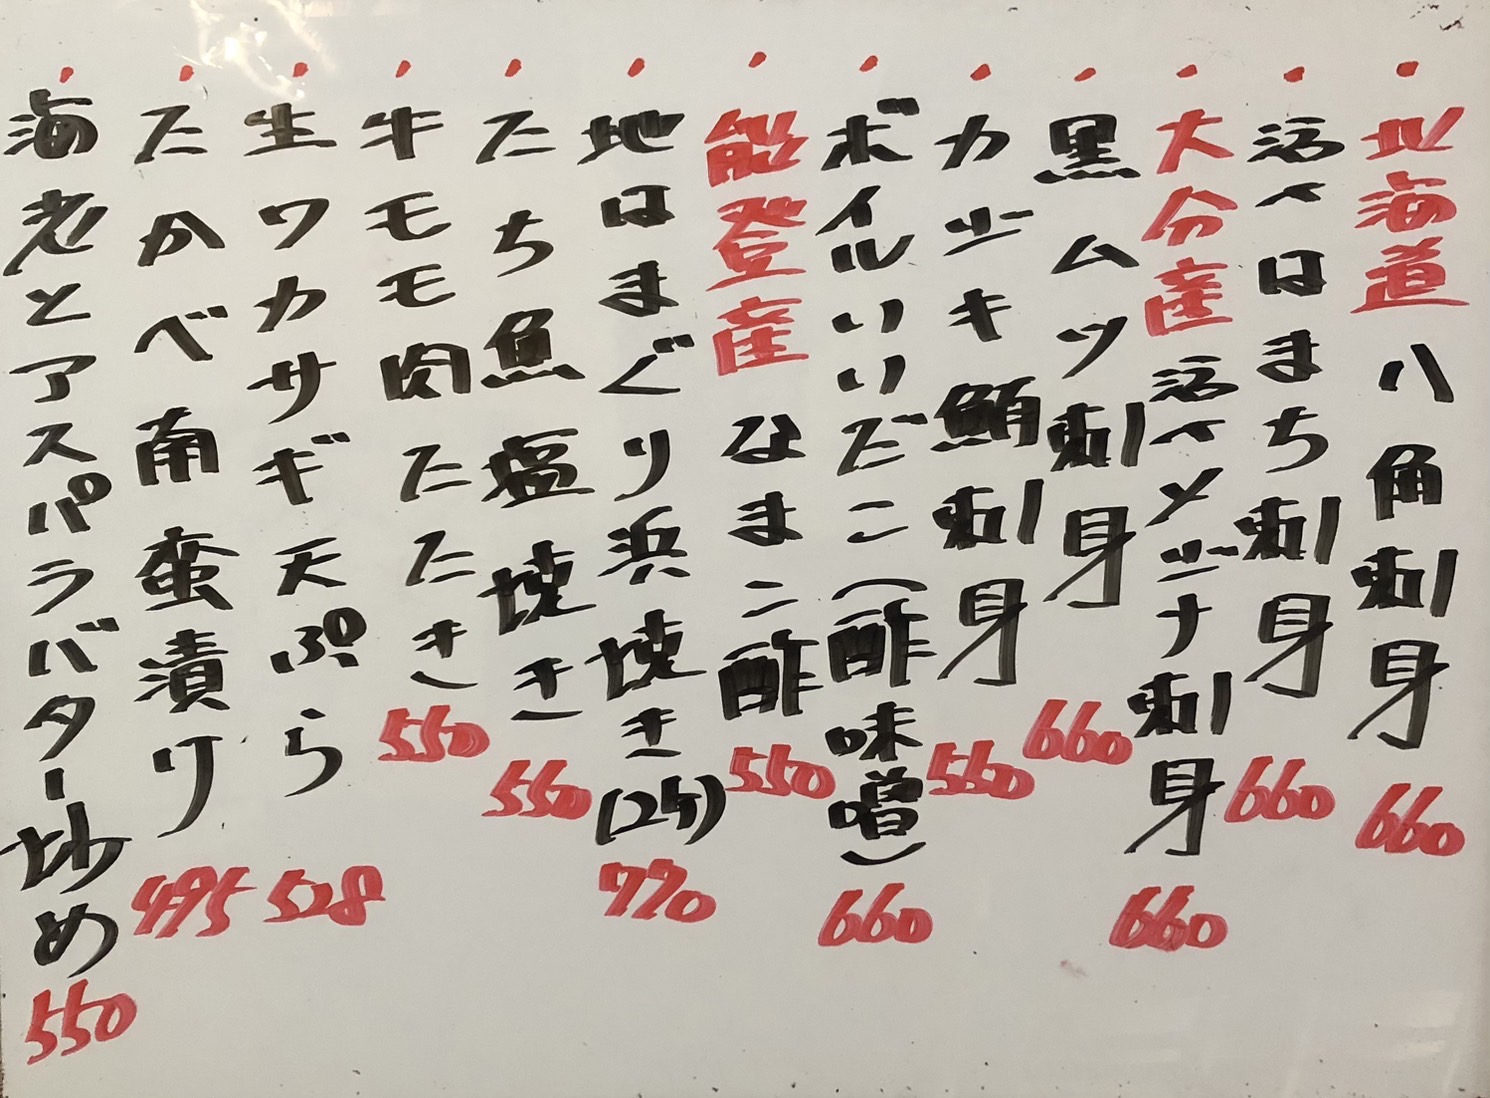 ・北海道 八角刺身 660
・活〆はまち刺身 660
・大分産 活〆メジナ刺身 660
・黒ムツ刺身 660
・カジキ鮪刺身 550
・ボイルいいだこ(酢味噌) 660
・能登産 なまこ酢 550
・地はまぐり浜焼き(2ケ) 770
・たち魚塩焼き 550
・牛モモ肉たたき 550
・生ワカサギ天ぷら 528
・たかべ南蛮漬け 495
・海老とアスパラバター炒め 550